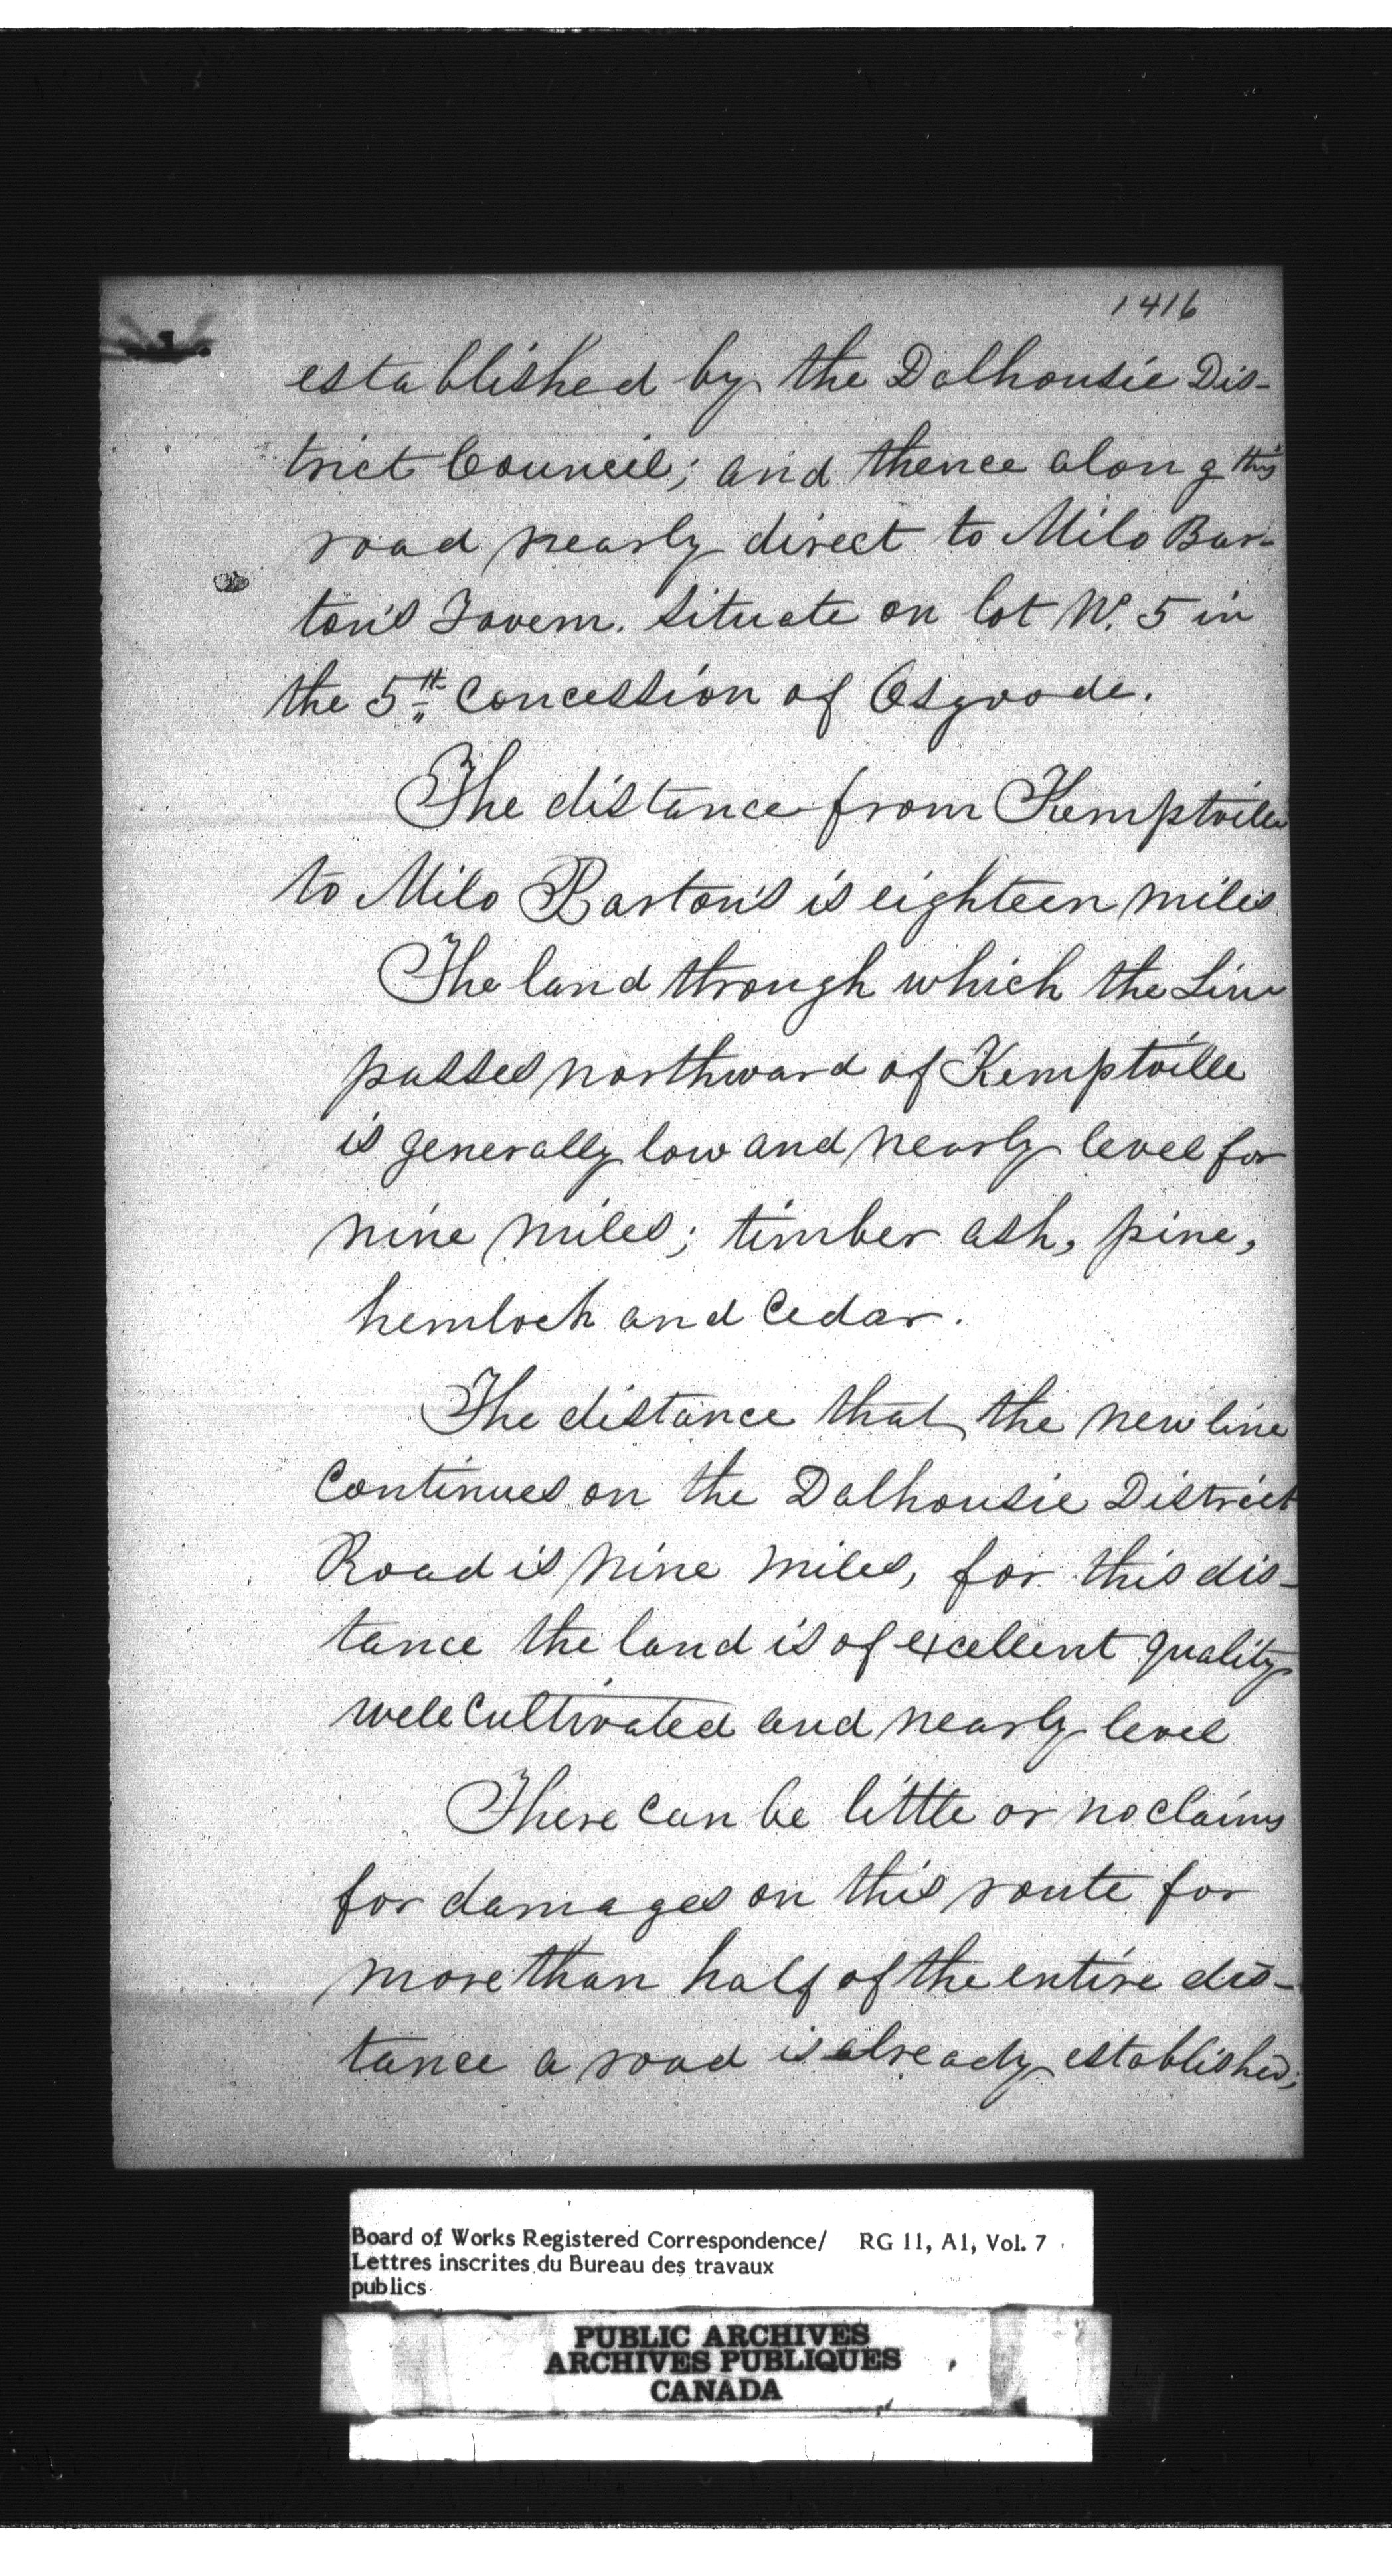 1416
established by the Dalhousie Dis-
trict Council; and thence along this
road nearly direct to Milo Bar-
ton's Tavern. Situate on lot No. 5 in
the 5th Concession of Osgoode.
The distance from Kemptville
to Milo Barton's is eighteen miles
The land through which the Line
passes northward of Kemptville
is generally low and nearly level for
nine miles; timber ash, pine,
hemlock and Cedar.
The distance that the new line
Continues on the Dalhousie District
Road is nine miles, for this dis-
tance the land is of excellent quality
well Cultivated and nearly level
There can be little or no claims
for damages on this route for
more than half of the entire dis-
tance a road is already established;
Board of Works Registered Correspondence/ RG 11, A1, Vol. 7
Lettres inscrites du Bureau des travaux
publics
PUBLIC ARCHIVES
ARCHIVES PUBLIQUES
CANADA